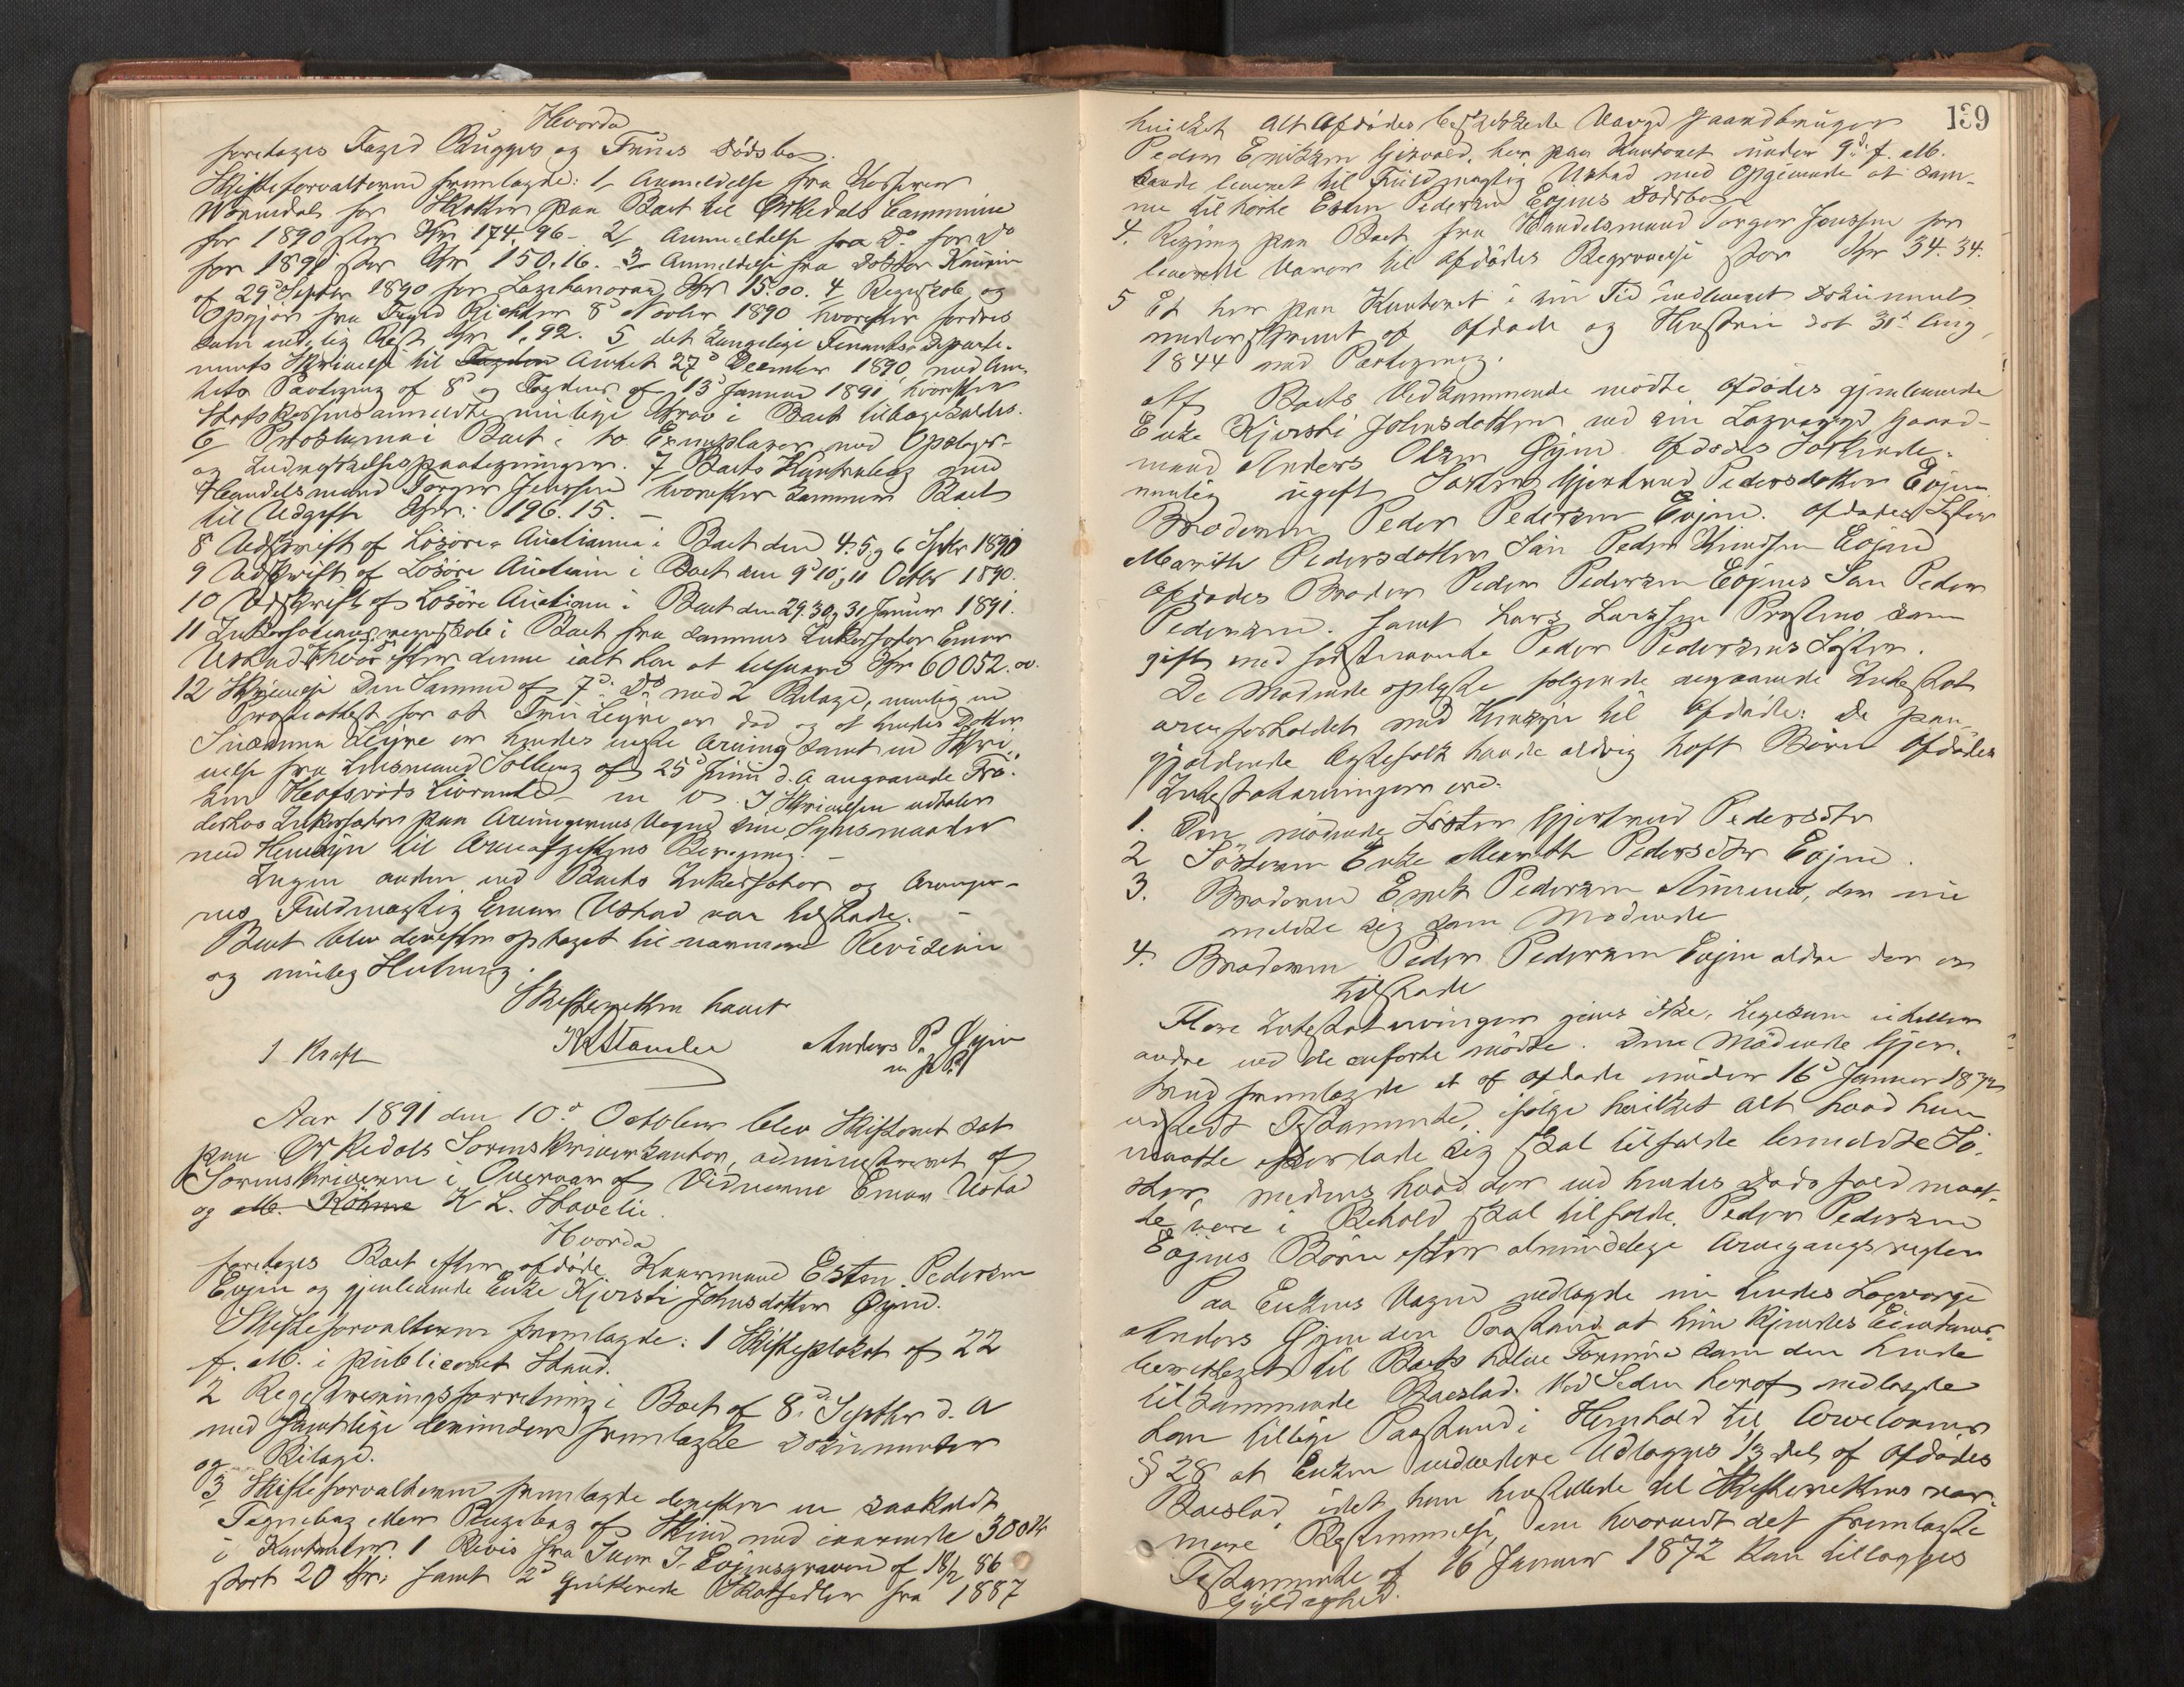 Hvorda
foretoges Foged Bugges og Frues Dödsbo.
Skifteforvalteren fremlagde: 1, Anmeldelse fra Kasserer
for Skatter paa Boet til Orkedals Commune
for 1890 stor Kr 174,96 - 2, Anmeldelse fra Do for Do
for 1891 stor Kr 150,16. 3 Anmeldelse fra Doktor
af 29d Septbr 1890 for Lægehonorar Kr 15.00. 4 Regnskab og
fra Foged Richter 8d Novbr 1890 hvorefter fordres
som endelig Rest Kr 1,92. 5, det kongelige Finants-Departe-
ments Skrivelse til Amtet 27d December 1890, med Am-
tets Paategning af 8d og Fogdens af 13d Januar 1891 hvorefter
Statskassens anmeldte mulige Krav i Boet tilbagekaldes.
6 Proclama i Boet i to Exemplarer med Oplæs-
og Indrykkelsespaategninger. 7 Boets
Handelsmand Torger Jenssen hvorefter kommer Boet
til Udgift Kr: 196.15. -
8 Udskrift af Lösöre Auctionen i Boet den 4. 5 og 6 Septbr 1890
9 Udskrift af Lösöre Auction i Boet den 9d 10 og 11 Octbr 1890.
10 Udskrift af Lösöre Auctionen i Boet den 29. 30 og 31 Januar 1891.
11 Inkassationsregnskab i Boet fra sammes Inkassator Einar
Ustad hvorefter denne ialt har at tilsvare Kr 60052.00.
12 Skrivelse Den Samme af 7d Ds med 2 Bilage, nemlig en
Presteattest for at Fru er död og at hendes Datter
er hendes eneste Arving samt en Skri-
velse fra Lensmand Solberg af 25d Juni d. A angaaende Frö-
ken - m v. I Skrivelsen udtaler
derhos Inkassator paa Arvingernes Vegne sine Synsmaader
med Hensyn til Arveafgiftens Beregning. -
Ingen anden end Boets Inkassator og Arvinger-
nes Fuldmægtig Einar Ustad var tilstede. -
Boet blev derefter optaget til nærmere Revision
og mulig Slutning.
Skifteretten hævet
J Kraft K Stavlie Anders P. Öyen
m p P
Aar 1891 den 10d October blev Skifteret sat
paa Orkedals Sorenskriverkontor, administreret af
Sorenskriveren i Overvær af Vidnerne Einar Ustad
og M. Röhme K L. Stavlie.
Hvorda
foretoges Boet efter afdöde Kaarmand Esten Pedersen
Evjen og gjenlevende Enke Kjersti Johnsdatter Öyen.
Skifteforvalteren fremlagde: 1 Skifteplakat af 22
f. M. i publiceret Stand.
2 Registreringsforretning i Boet af 8d Septbr d. A
med samtlige derunder fremlagte Dokumenter
og Bilage.
3 Skifteforvalteren fremlagde derefter en saakaldt
Tegnebog eller Pengebog af Skind med iværende 300 Kr
i Kontanter. 1 Bevis fra Iver J. Evjensgraven af 18/2 86
stort 20 Kr. samt 2d quitterede Skatsedler fra 1887
139
hvilket Alt Afdödes beskikkede Værge Gaardbruger
Peder Eriksen Gjervold, her paa Kontoret under 9d f. M.
havde leveret til Fuldmægtig Ustad med Opgivende at sam-
me tilhörte Esten Pedersen Evjens Dödsbo
4. Regning paa Boet fra Handelsmand Torger Jenssen for
leverede Varer til Afdödes Begravelse stor Kr 34.34.
5 Et her paa Kontoret i sin Tid indleveret Dokument
underskrevet af Afdöde og Hustru dat 31d Aug
1844 med Paategning.
Af Boets Vedkommende mödte Afdödes gjenlevende
Enke Kjersti Johnsdatter med sin Lagværge Gaard-
mand Anders Olsen Öyen. Afdödes Södskende-
nemlig ugift Söster Gjertrud Pedersdatter Evjen
Broderen Peder Pedersen Evjen. Afdödes Söster
Marithe Pedersdatters Sön Peder Knudsen Evjen
Afdödes Broder Peder Pedersen Evjens Sön Peder
Pedersen. samt Lars Larssen som
gift med sidstnævnte Peder Pedersens Söster.
De Mödende oplyste fölgende angaaende Intestat
arveforholdet med Hensyn til Afdöde: De paa-
gjældende Ægtefolk havde aldrig havt Börn Afdödes
Intestatarvinger ere.
1. Den mödende Söster Gjertrud Pedersdtr
2 Sösteren Enke Marith Pedersdtr Evjen.
3. Broderen Erik Pedersen, der nu
meldte sig som Mödende
4. Broderen Peder Pedersen Evjen ældre der er
tilstede
Flere Intestatarvinger gives ikke, ligesom ei heller
andre end de anförte mödte. Den Mödende Gjer-
trud fremlagde et af Afdöde under 16d Januar 1872
udstedt Testamente, ifölge hvilket Alt hvad han
maatte efterlade sig skal tilfalde bemeldte Sö-
ster, medens hvad der ved hendes Dödsfald maat-
te være i Behold skal tilfalde Peder Pedersen
Evjens Börn efter almindelige Arvegangsregler
Paa Enkens Vegne nedlagde nu hendes Lagværge
Anders Öyen den Paastand at hun kjendes Eiendoms-
berettiget til Boets halve Formue som den hende
tilkommende Boeslod. Ved Siden heraf nedlagde
han tillige Paastand i Henhold til Arvelovens
§ 28 at Enken endvidere Udlægges 1/3 del af Afdödes
Boeslod idet han henstillede til Skifterettens nær-
mere Bestemmelse, om hvorvidt det fremlagte
Testamente af 16 Januar 1872 kan tillægges
Gyldighed.